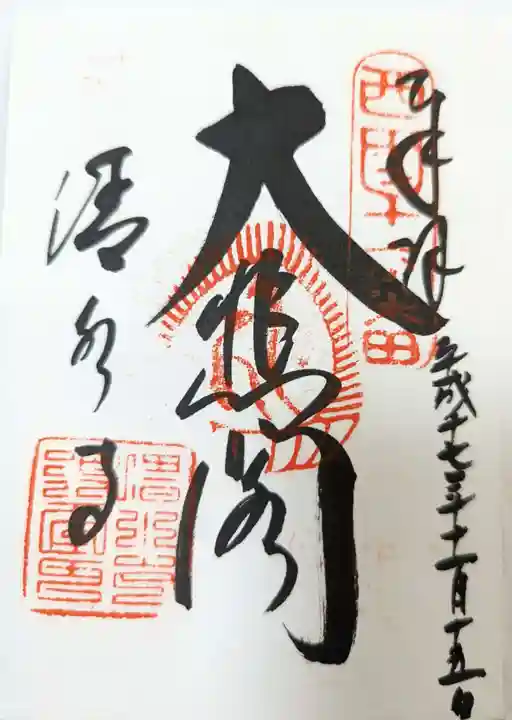 奉拝
平成十七年十一月十五日
西国十六番
大悲閣
清水寺